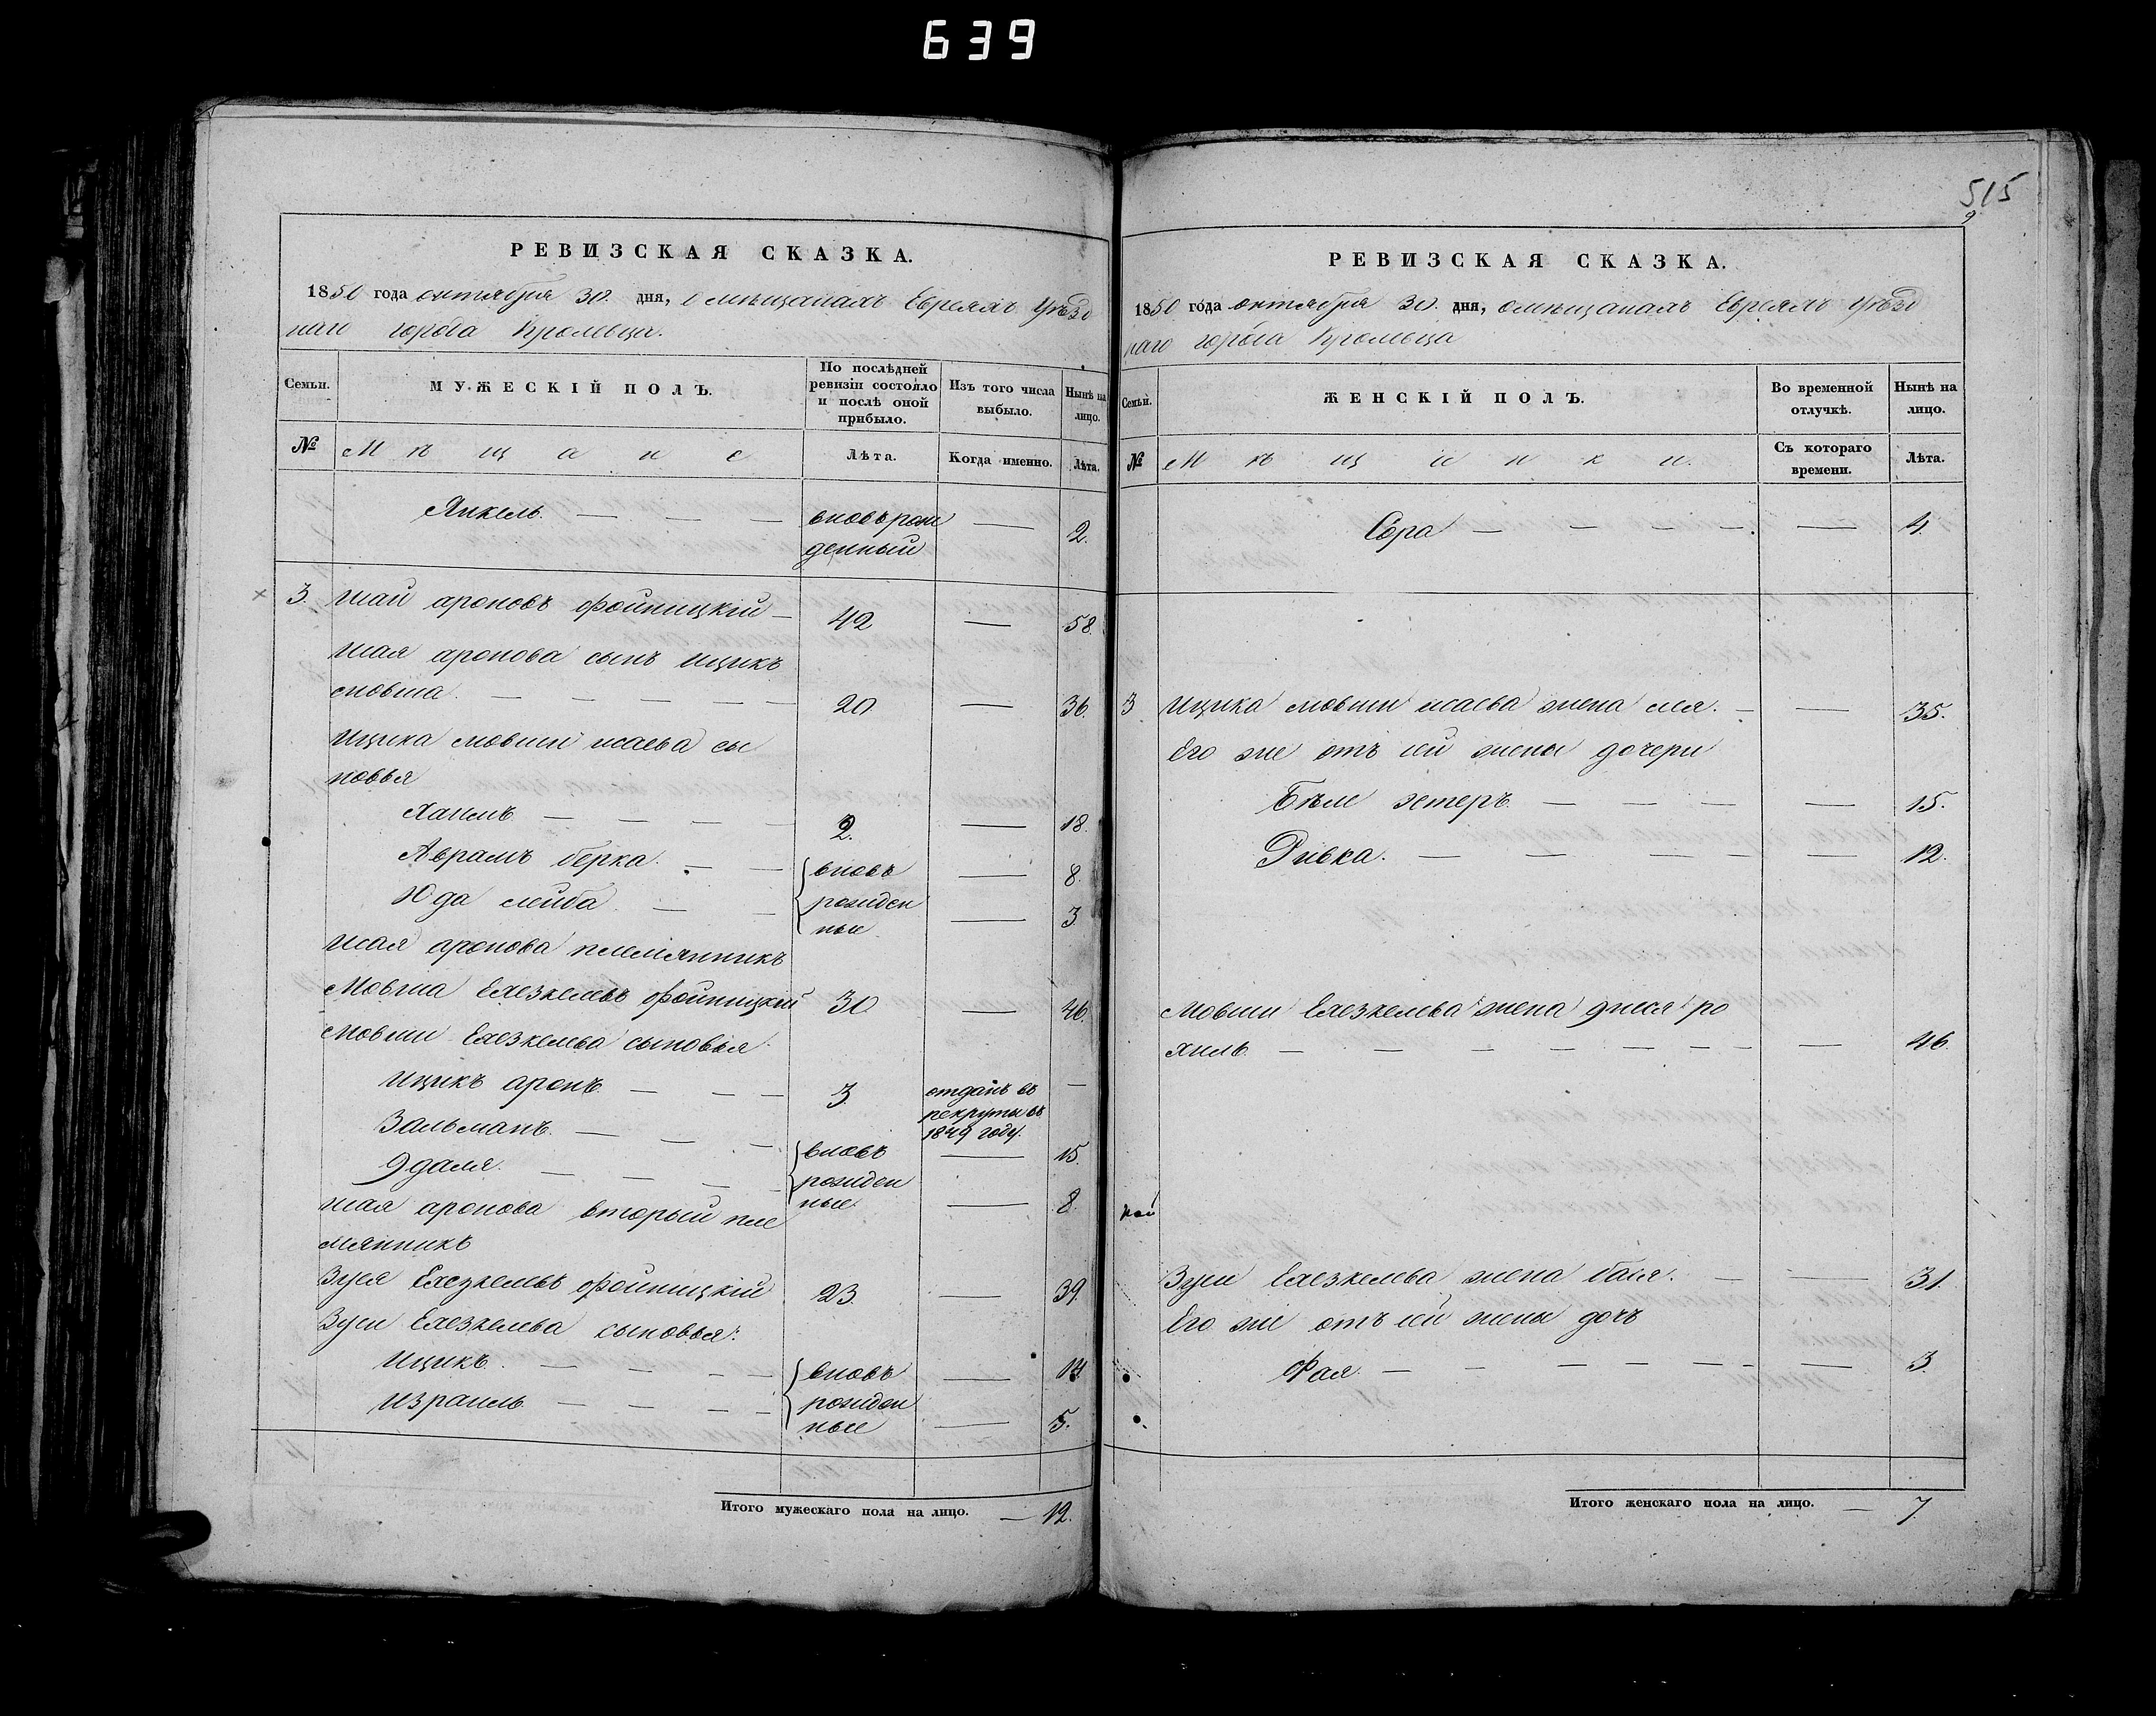 639
РЕВИЗСКАЯ СКАЗКА.
1850 года октября 30. дня, о мѣщанахъ Евреяхъ уѣзд
наго города Кролевца.
Семьи.
МУЖЕСКІЙ ПОЛЪ.
По послѣдней ревизіи состояло и послѣ оной прибыло.
Изъ того числа выбыло.
Нынѣ на лицо.
№
Мѣщане
Лѣта.
Когда именно.
Лѣта.
Янкель. — — — вновь рож — 2.
денный
3. Шай ароновъ Фойницкій — 42 — 58.
Шая аронова сынъ ицикъ
мовша. — — — — 20 — 36.
Ицика мовши исаева сы
новья
Хаимъ — — — — 2. — 18.
Аврамъ берка. — — вновь — 8.
Юда лейба — — рожден — 3
ные
Шая аронова племянникъ
Мовша Ехезкелевъ Фойницкій 30 — 46.
Мовши Ехезкелева сыновья.
Ицикъ аронъ. — — — 3. отданъ въ —
рекруты въ
1849 году.
Зальманъ. — — — вновь — 15.
Эдаля. — — — — рожден
ные — 8.
Шая аронова вторый пле
мянникъ
Зуся Ехезкелевъ Фойницкій 23. — 39.
Зуси Ехезкелева сыновья:
Ицикъ. — — — — вновь — 14.
Израиль — — — — рожден
ные — 5.
Итого мужескаго пола на лицо. — 12.
515
9
РЕВИЗСКАЯ СКАЗКА.
1850 года октября 30. дня, о мѣщанахъ Евреяхъ уѣзд
наго города Кролевца
Семьи.
ЖЕНСКІЙ ПОЛЪ.
Во временной отлучкѣ.
Нынѣ на лицо.
№
Мѣщанки.
Съ котораго времени.
Лѣта.
Сора — — — — — — 4.
3 Ицика мовши исаева жена лея. — — 35.
Его же отъ сей жены дочери
Бѣле эстеръ — — — — 15.
Ривка. — — — — — 12.
Мовши Ехезкелева жена двося ро
хиль — — — — — — — — 46.
Зуси Ехезкелева жена бася. — — 31.
Его же отъ сей жены дочь
Фая — — — — — — — 3.
Итого женскаго пола на лицо. — 7.